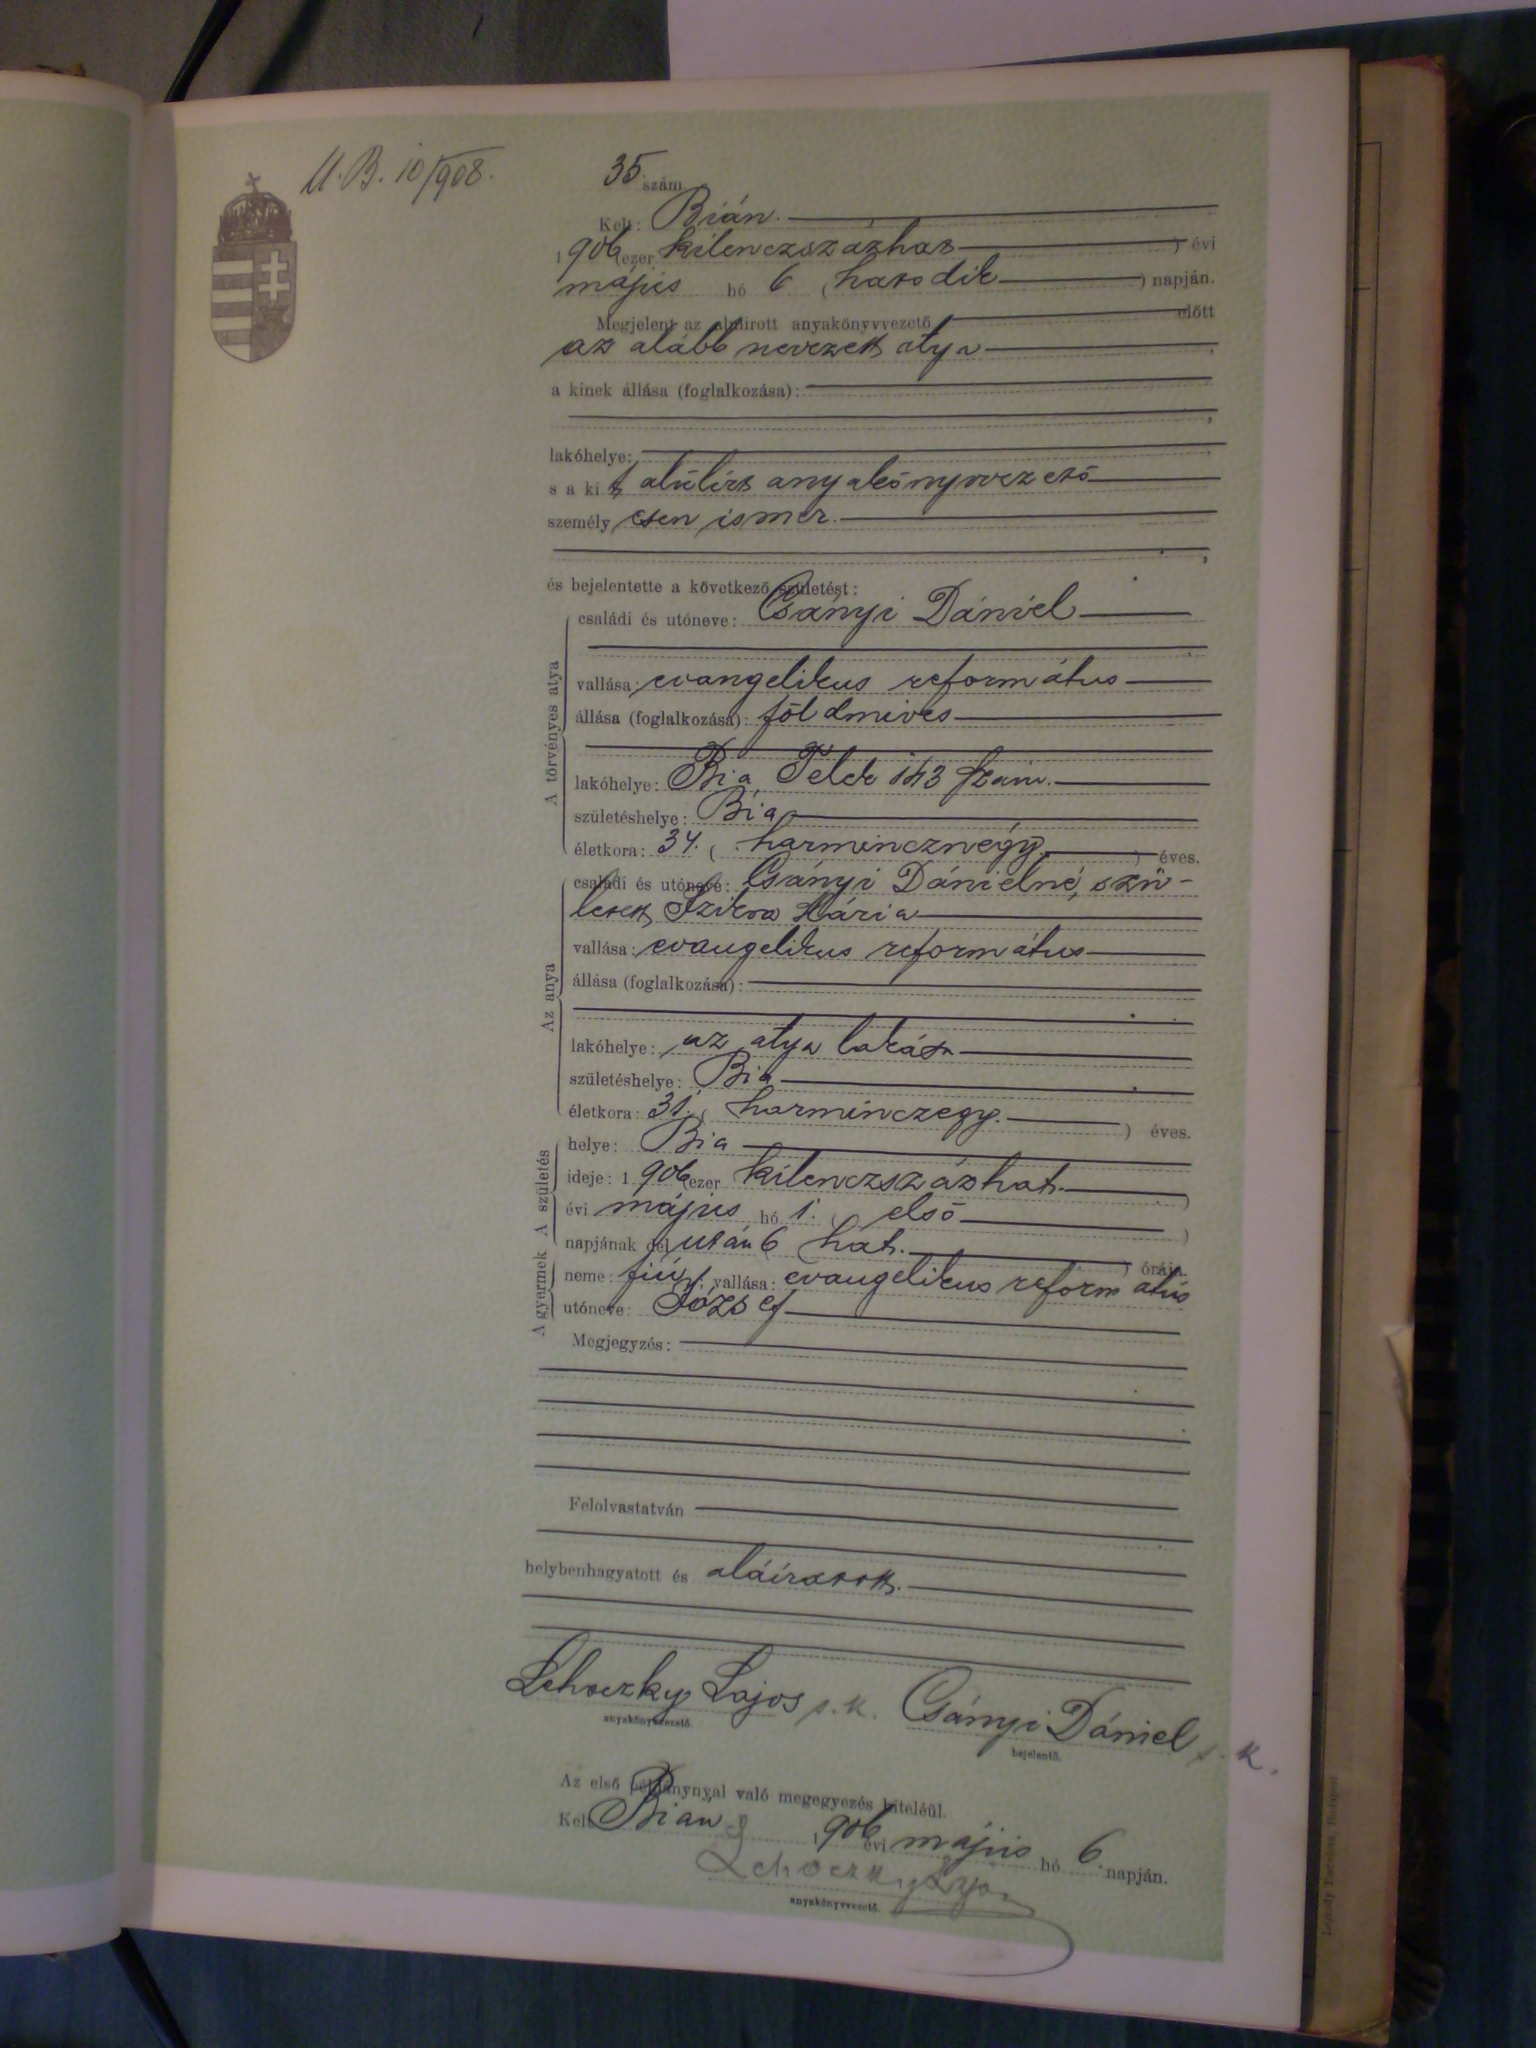 U. B. 10/908.
35. szám
Kelt: Bián.
1906 (ezer kilenczszázhat) évi
május hó 6 (hatodik) napján.
Megjelent az alulirott anyakönyvvezető előtt
az alább nevezett atya
a kinek állása (foglalkozása):
lakóhelye:
s a kit alúlírt anyakönyvvezető
személyesen ismer.
és bejelentette a következő születést:
A törvényes atya
családi és utóneve: Csányi Dániel
vallása: evangelikus református
állása (foglalkozása): földmives
lakóhelye: Bia, Telek 143 szám.
születéshelye: Bia
életkora: 34. (harmincznégy) éves.
Az anya
családi és utóneve: Csányi Dánielné, szü-
letett Szikra Mária
vallása: evangelikus református
állása (foglalkozása):
lakóhelye: az atya lakása
születéshelye: Bia
életkora: 31. (harminczegy.) éves.
A születés
helye: Bia
ideje: 1906 (ezer kilenczszázhat.)
évi május hó 1. (első)
napjának dél után 6 (hat.) órája.
A gyermek
neme: fiú; vallása: evangelikus református
utóneve: József
Megjegyzés:
Felolvastatván
helybenhagyatott és aláíratott.
Lehoczky Lajos s. k. Csányi Dániel s. k.
anyakönyvvezető. bejelentő.
Az első példánynyal való megegyezés hiteléül.
Kelt Bián 1906 évi május hó 6. napján.
Lehoczky Lajos
anyakönyvvezető.